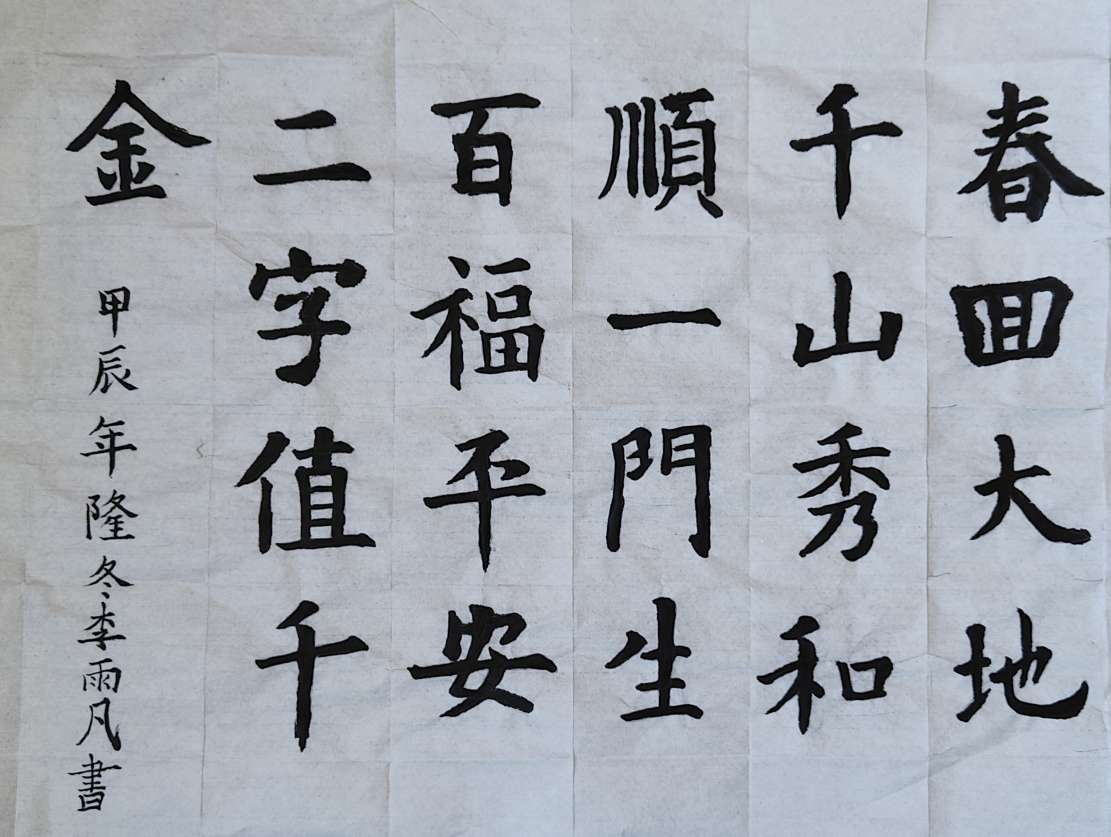 春回大地
千山秀和
順一門生
百福平安
二字值千
金
甲辰年隆冬李雨凡書